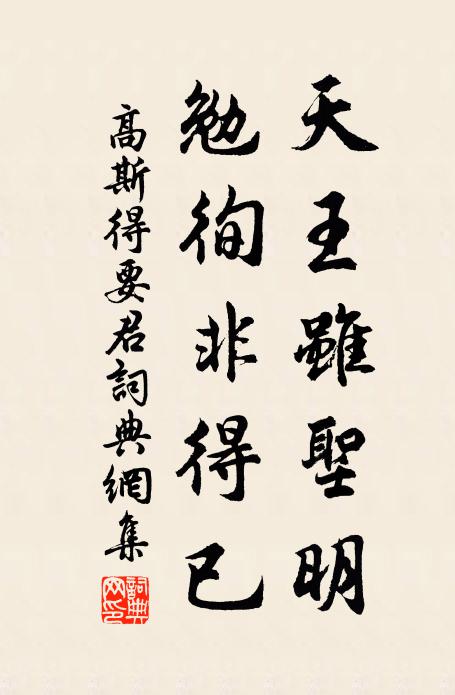 天王雖聖明
勉徇非得已
高斯得要君詞典網集
詞典網印